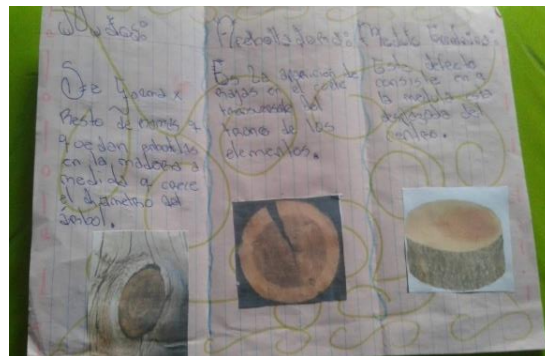 Nudos:
Se forma x
Resto de ramas q
quedan
en la madera a
medida q crece
el diametro del
arbol.
Es la aparicion de
rajas en el corte
transversal del
tronco de los
elementos.
Medula Excentrica:
Este defecto
consiste en q
la medula esta
desplazada del
centro.